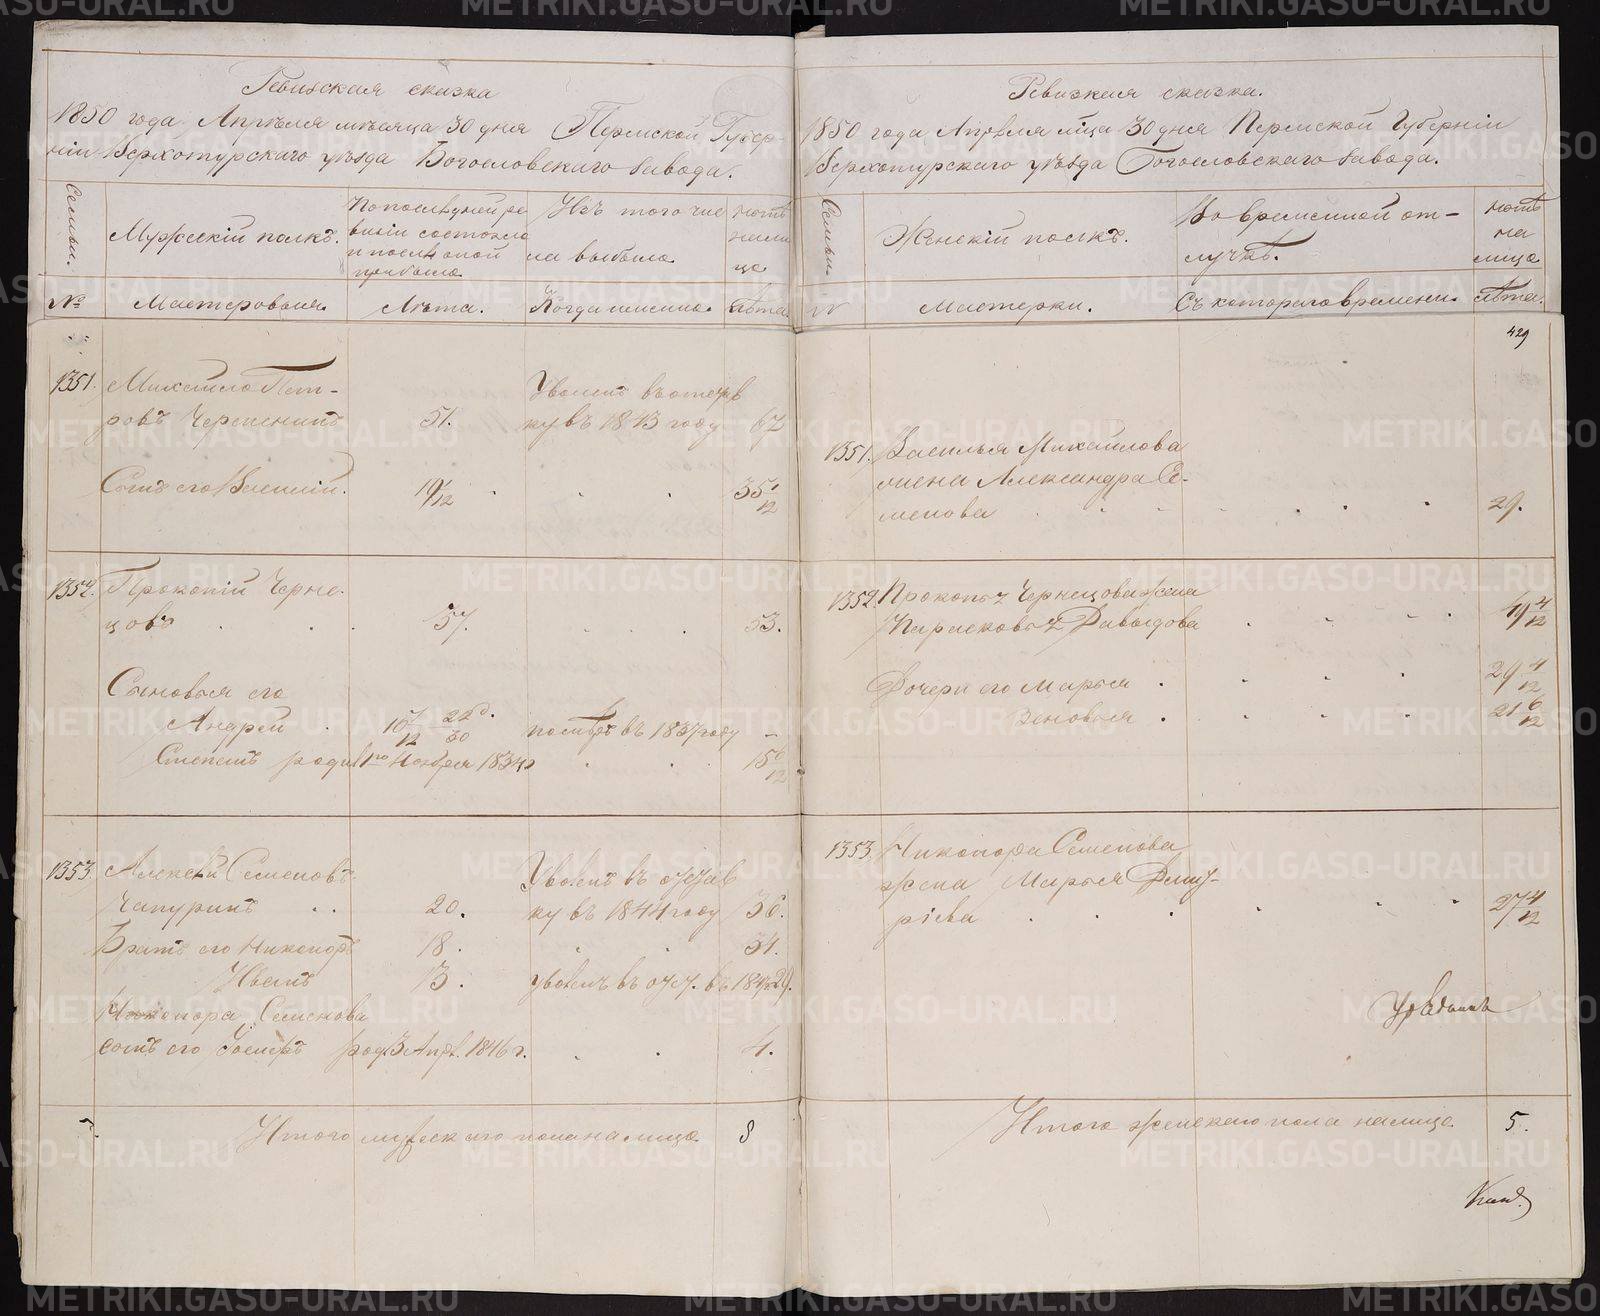 Ревизская сказка
1850 года Апреля месяца 30 дня Пермской Губер-
ніи Верхотурскаго уѣзда Богословскаго завода.
Семьи.
Мужескій полъ.
По последней ре
визіи состояло
и после оной
прибыло
Изъ того чис
ла выбыло
ныне
нали
цо
№
Мастеровыя.
Лѣта.
Когда именно.
лѣта
1351.
Михайло Пет-
ровъ Черемнинъ
51.
Уволенъ въ отстав
ку въ 1843 году
67
Сынъ его Василій.
19 1/12
35 1/12
1352.
Прокопій Черне-
цовъ
37.
53.
Сыновья его
Андрей
10 7/12
помѣръ въ 1837 году
-
Степанъ родил 1го Ноября 1834
15 6/12
1353.
Алексѣй Семеновъ
Чапуринъ
20.
Уволенъ въ отстав
ку въ 1844 году
36.
Братъ его Никоноръ
18.
34.
Иванъ
13.
уволенъ въ отст. въ
29.
Никонора Семенова
сынъ его
род. 3 Апр. 1846 г.
4.
Итого мужескаго пола на лицо
8
Ревизкая сказка.
1850 года Апреля мца 30 дня Пермской Губерніи
Верхотурскаго уѣзда Богословскаго завода.
Семьи.
Женскій полъ.
Во временной от-
лучкѣ.
ныне
на
лицо
№
Мастерки.
Съ котораго времени.
лѣта.
429
1351.
Василья Михайлова
жена Александра Се-
менова
29.
1352.
Прокопья Чернецова жена
Парасковья Давыдова
49 4/12
Дочери его Марья
29 4/12
Зеновья
21 6/12
1353.
Никонора Семенова
жена Марья Дмит-
ріева
27 4/12
Итого женскаго пола налицо
5.